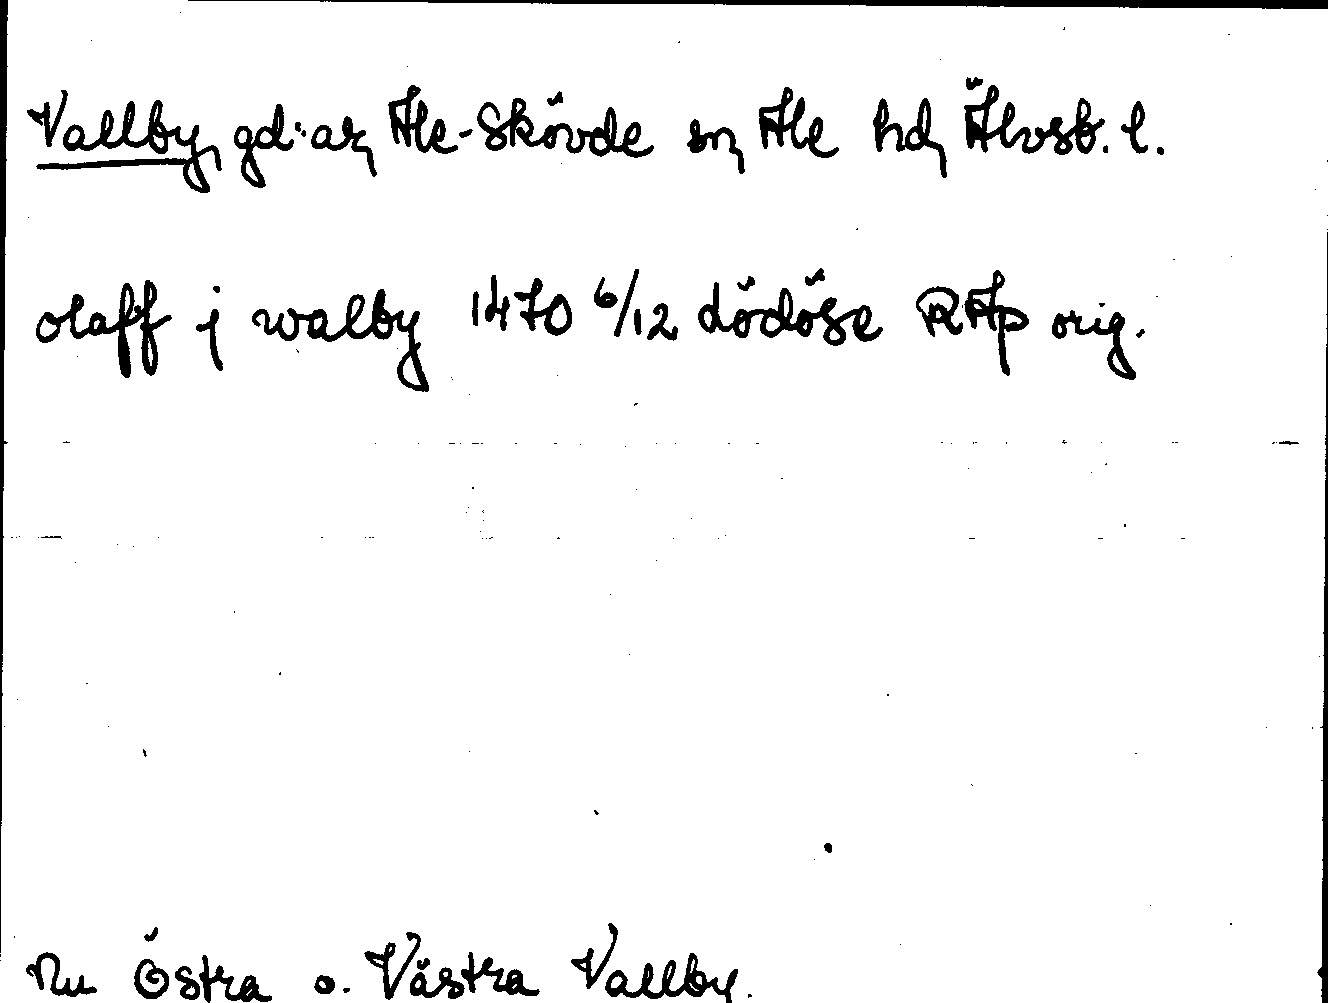 Vallby, gd:ar, Ale-Skövde sn, Ale hd, Älvsb. l.
olaff j walby 1470 6/12 Lödöse RAp orig.
Nu Östra o. Västra Vallby.